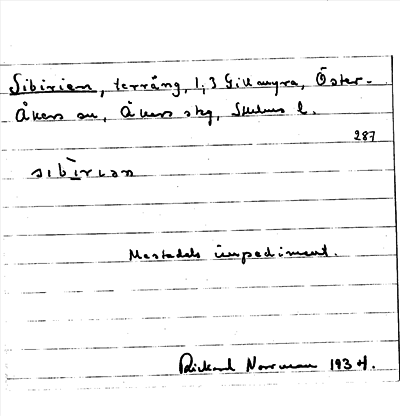 Sibirien, terräng, 1,3 Gillamyra, Öster-
Åkers sn, Åkers skg, Sthlms l.
287
sìbìrian
Mestadels impediment.
Rickard Norrman 1934.